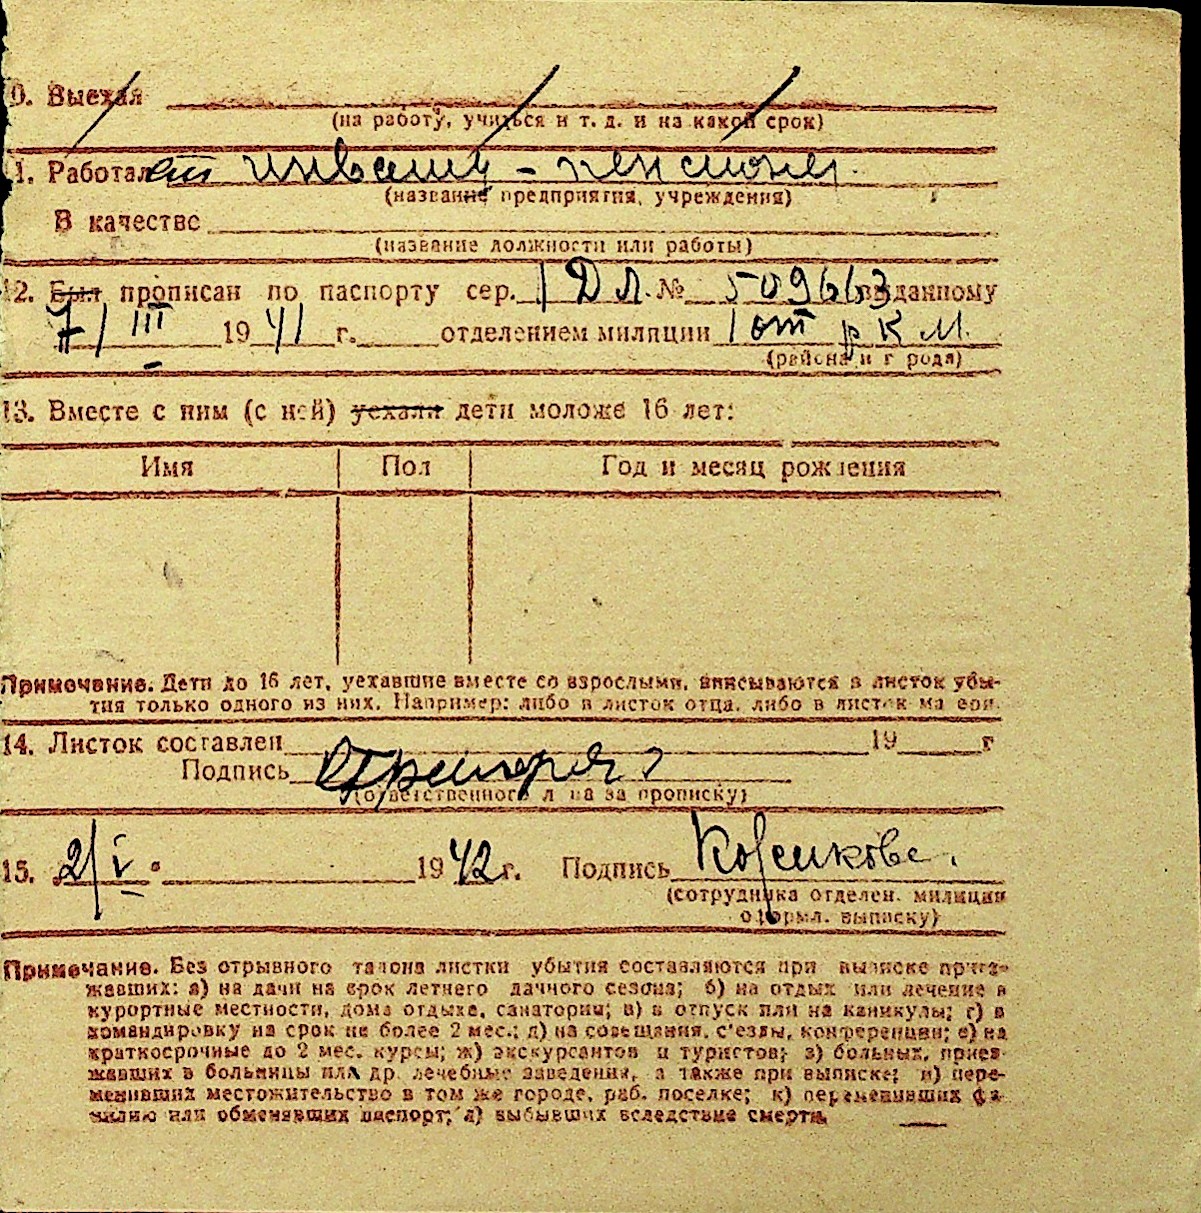 0. Выехал
(на работу, учиться и т. д. и на какой срок)
1. Работал инвалид - пенсионер.
(название предприятия, учреждения)
В качестве
(название должности или работы)
12. Был прописан по паспорту сер. I ДЛ № 509663 выданному
7/III 1941 г. отделением милиции 1 от РКМ.
(района и города)
13. Вместе с ним (с ней) уехали дети моложе 16 лет:
Имя Пол Год и месяц рождения
Примечание. Дети до 16 лет, уехавшие вместе со взрослыми, вписываются в листок убы-
тия только одного из них. Например: либо в листок отца, либо в листок матери.
14. Листок составлен 19 г
Подпись
(ответственного лица за прописку)
15. 2/V 1942 г. Подпись
(сотрудника отделен. милиции
оформл. выписку)
Примечание. Без отрывного талона листки убытия составляются при выписке приез-
жавших: а) на дачи на срок летнего дачного сезона; б) на отдых или лечение в
курортные местности, дома отдыха, санатории; в) в отпуск или на каникулы; г) в
командировку на срок не более 2 мес.; д) на совещания, с'езды, конференции; е) на
краткосрочные до 2 мес. курсы; ж) экскурсантов и туристов; з) больных, приез-
жавших в больницы или др. лечебные заведения, а также при выписке; и) пере-
менивших местожительство в том же городе, раб. поселке; к) переменивших фа-
милию или обменявших паспорт; л) выбывших вследствие смерти.